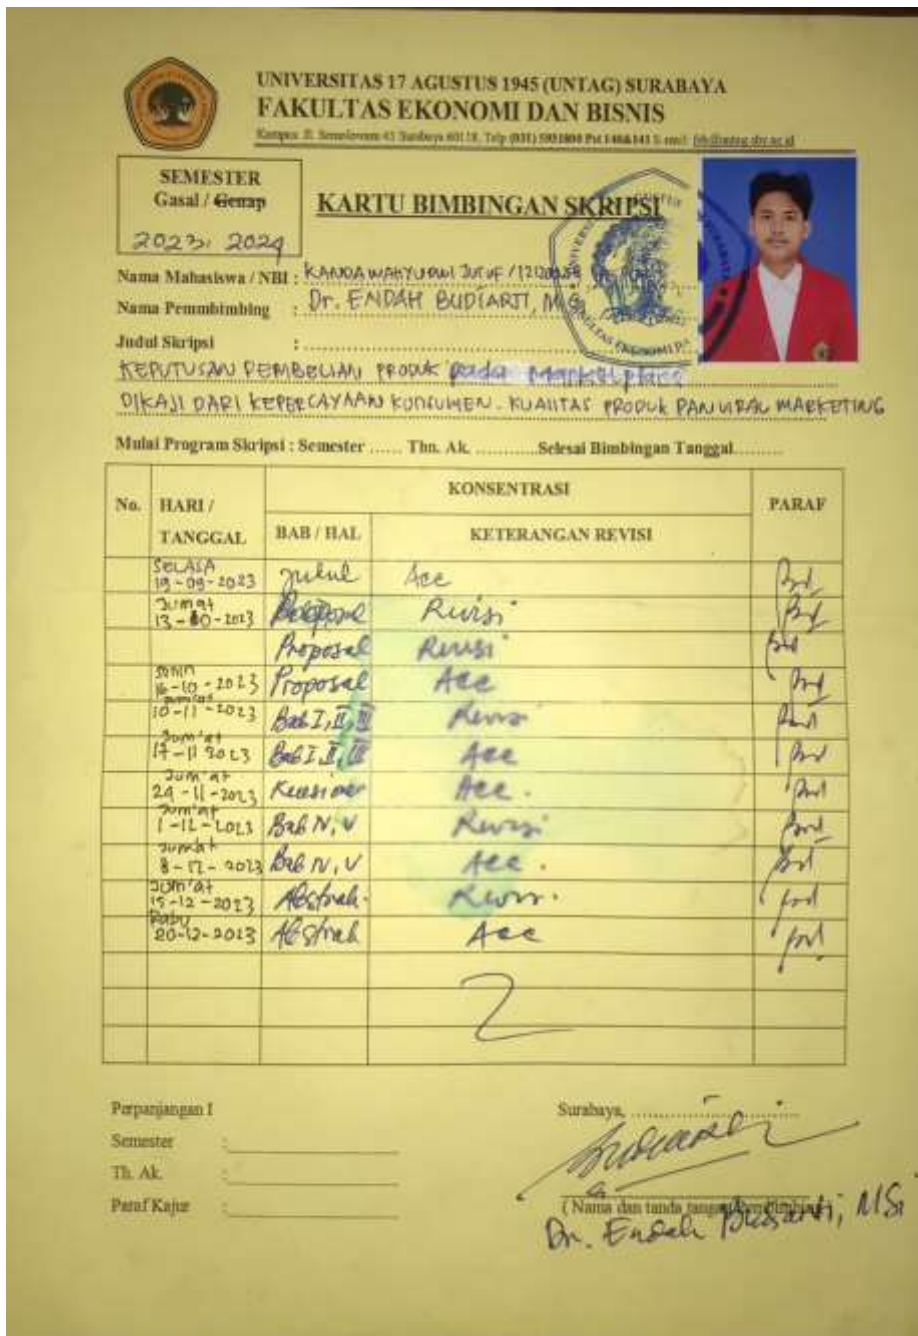 UNIVERSITAS 17 AGUSTUS 1945 (UNTAG) SURABAYA
FAKULTAS EKONOMI DAN BISNIS
SEMESTER
Gasal / Genap
2023, 2024
KARTU BIMBINGAN SKRIPSI
Nama Mahasiswa / NBI :
Nama Pemmbimbing : Dr. ENDAH BUDIARTI, M.S
Judul Skripsi :
KEPUTUSAN PEMBELIAN PRODUK pada Marketplace
DIKAJI DARI KEPERCAYAAN KONSUMEN. KUALITAS PRODUK DAN VIRAL MARKETING
Mulai Program Skripsi : Semester ...... Thn. Ak. ............Selesai Bimbingan Tanggal..........
No. HARI / TANGGAL KONSENTRASI PARAF
BAB / HAL KETERANGAN REVISI
SELASA
19-09-2023 Judul Acc
Jum'at
13-10-2023 Revisi
Proposal Revisi
SENIN
16-10-2023 Proposal Acc
Jum'at
10-11-2023 Bab I, II, III Revisi
Jum'at
17-11 2023 Bab I II, III Acc
Jum'at
24-11-2023 Kuesioner Acc.
Jum'at
1-12-2023 Bab IV, V Revisi
Jum'at
8-12-2023 Bab IV, V Acc.
Jum'at
15-12-2023 Abstrak. Revisi.
Rabu
20-12-2023 Abstrak Acc
Perpanjangan I
Semester :
Th. Ak. :
Paraf Kajur :
Surabaya, ..............................
( Nama dan tanda tangan Pembimbing )
Dr. Endah Budiarti, MSi